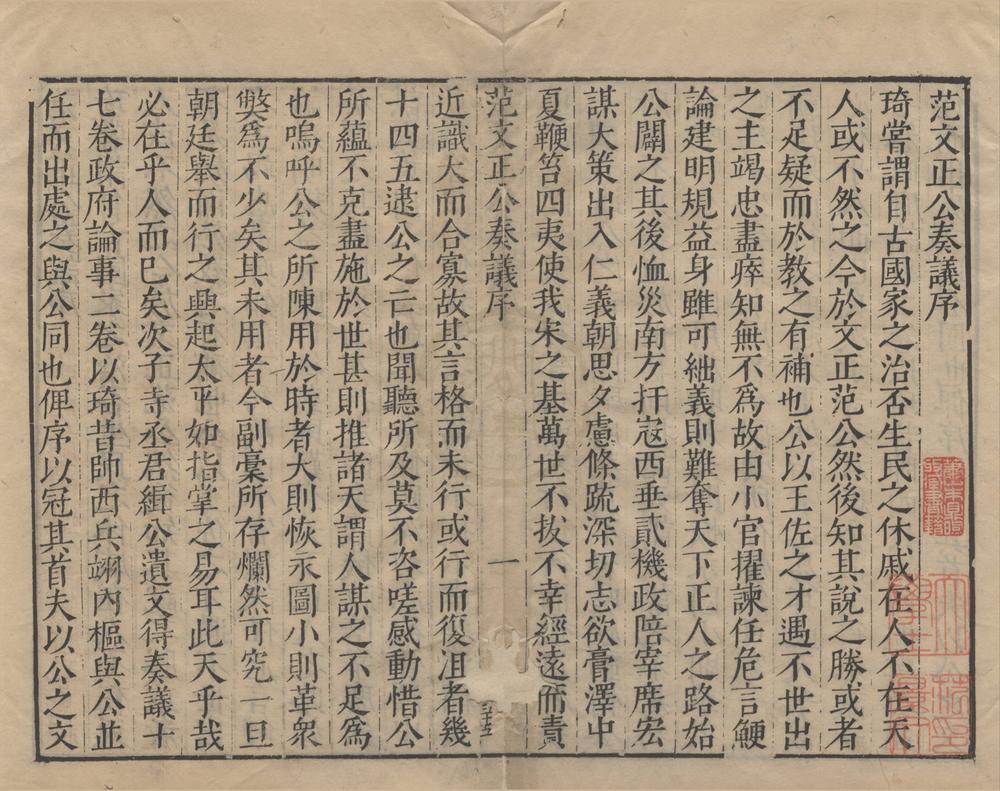 范文正公奏議序
琦嘗謂自古國家之治否生民之休戚在人不在天
人或不然之今於文正范公然後知其說之勝或者
不足疑而於教之有補也公以王佐之才遇不世出
之主竭忠盡瘁知無不爲故由小官擢諫任危言鯁
論建明規益身雖可絀義則難奪天下正人之路始
公闢之其後恤災南方扞寇西垂貳機政陪宰席宏
謀大策出入仁義朝思夕慮條䟽深切志欲膏澤中
夏鞭笞四夷使我宋之基萬世不拔不幸經遠而責
范文正公奏議序
一
近識大而合寡故其言格而未行或行而復沮者幾
十四五逮公之亡也聞聽所及莫不咨嗟感動惜公
所蘊不克盡施於世甚則推諸天謂人謀之不足爲
也嗚呼公之所陳用於時者大則恢永圖小則革衆
獘爲不少矣其未用者今副稾所存爛然可究一旦
朝廷舉而行之興起太平如指掌之易耳此天乎哉
必在乎人而已矣次子寺丞君緝公遺文得奏議十
七卷政府論事二卷以琦昔帥西兵翊內樞與公並
任而出處之與公同也俾序以冠其首夫以公之文